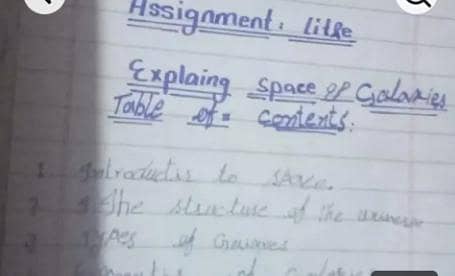 Assignment: litle
Explaing space of Galaxies
Table of = contents:
1 Introductis to space.
2 The structure of the universe
3 Types of
of